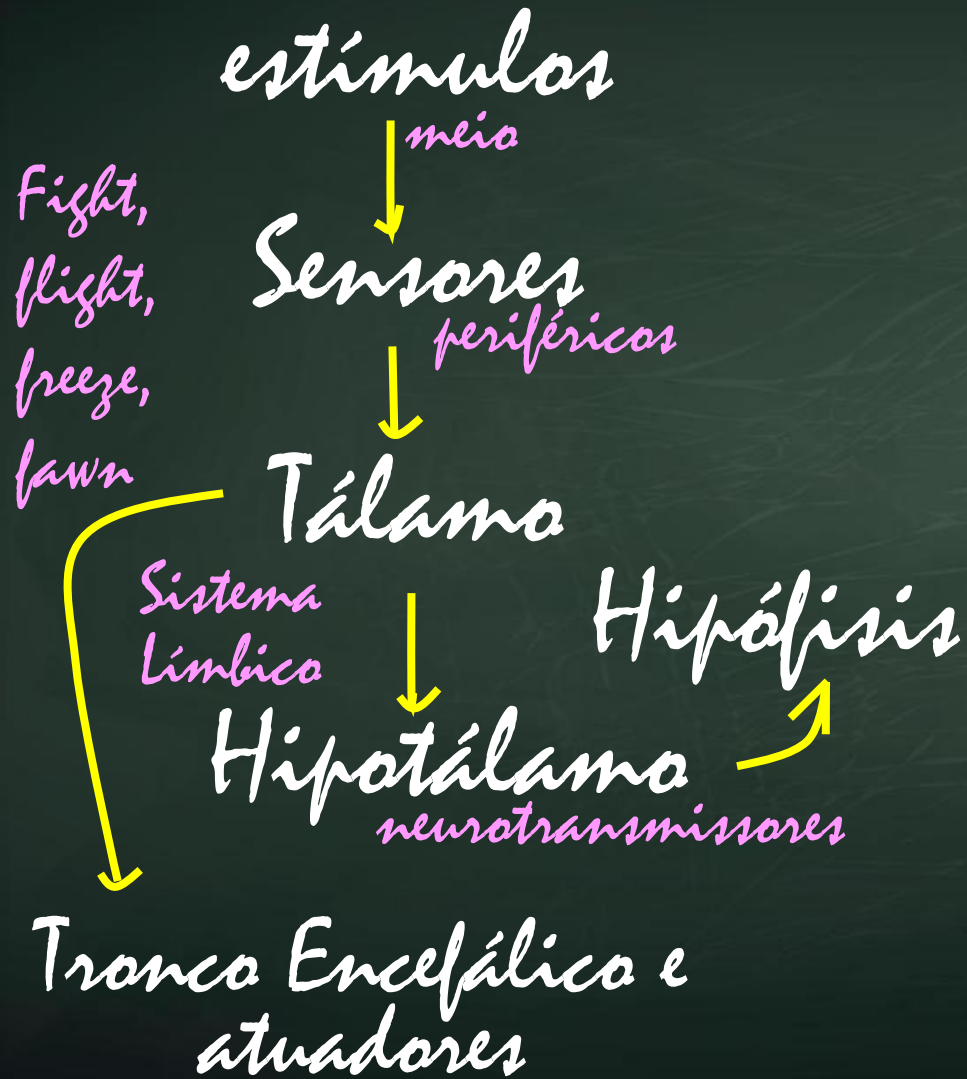 estímulos
meio
Fight,
flight,
freeze,
fawn
Sensores
periféricos
Tálamo
Sistema
Límbico
Hipófisis
Hipotálamo
neurotransmissores
Tronco Encefálico e
atuadores